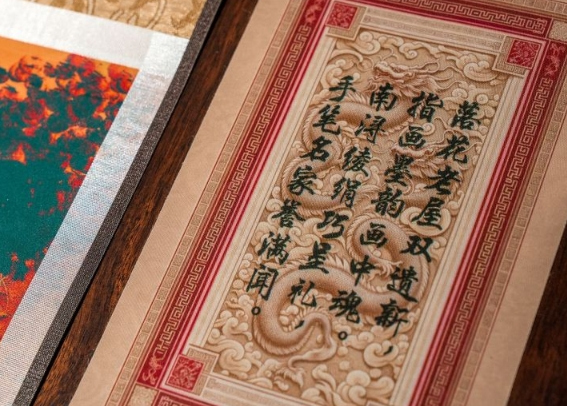 落花老屋双遗新，
指画墨韵画中魂。
南浔绫绢巧呈礼，
手笔名家誉满闻。